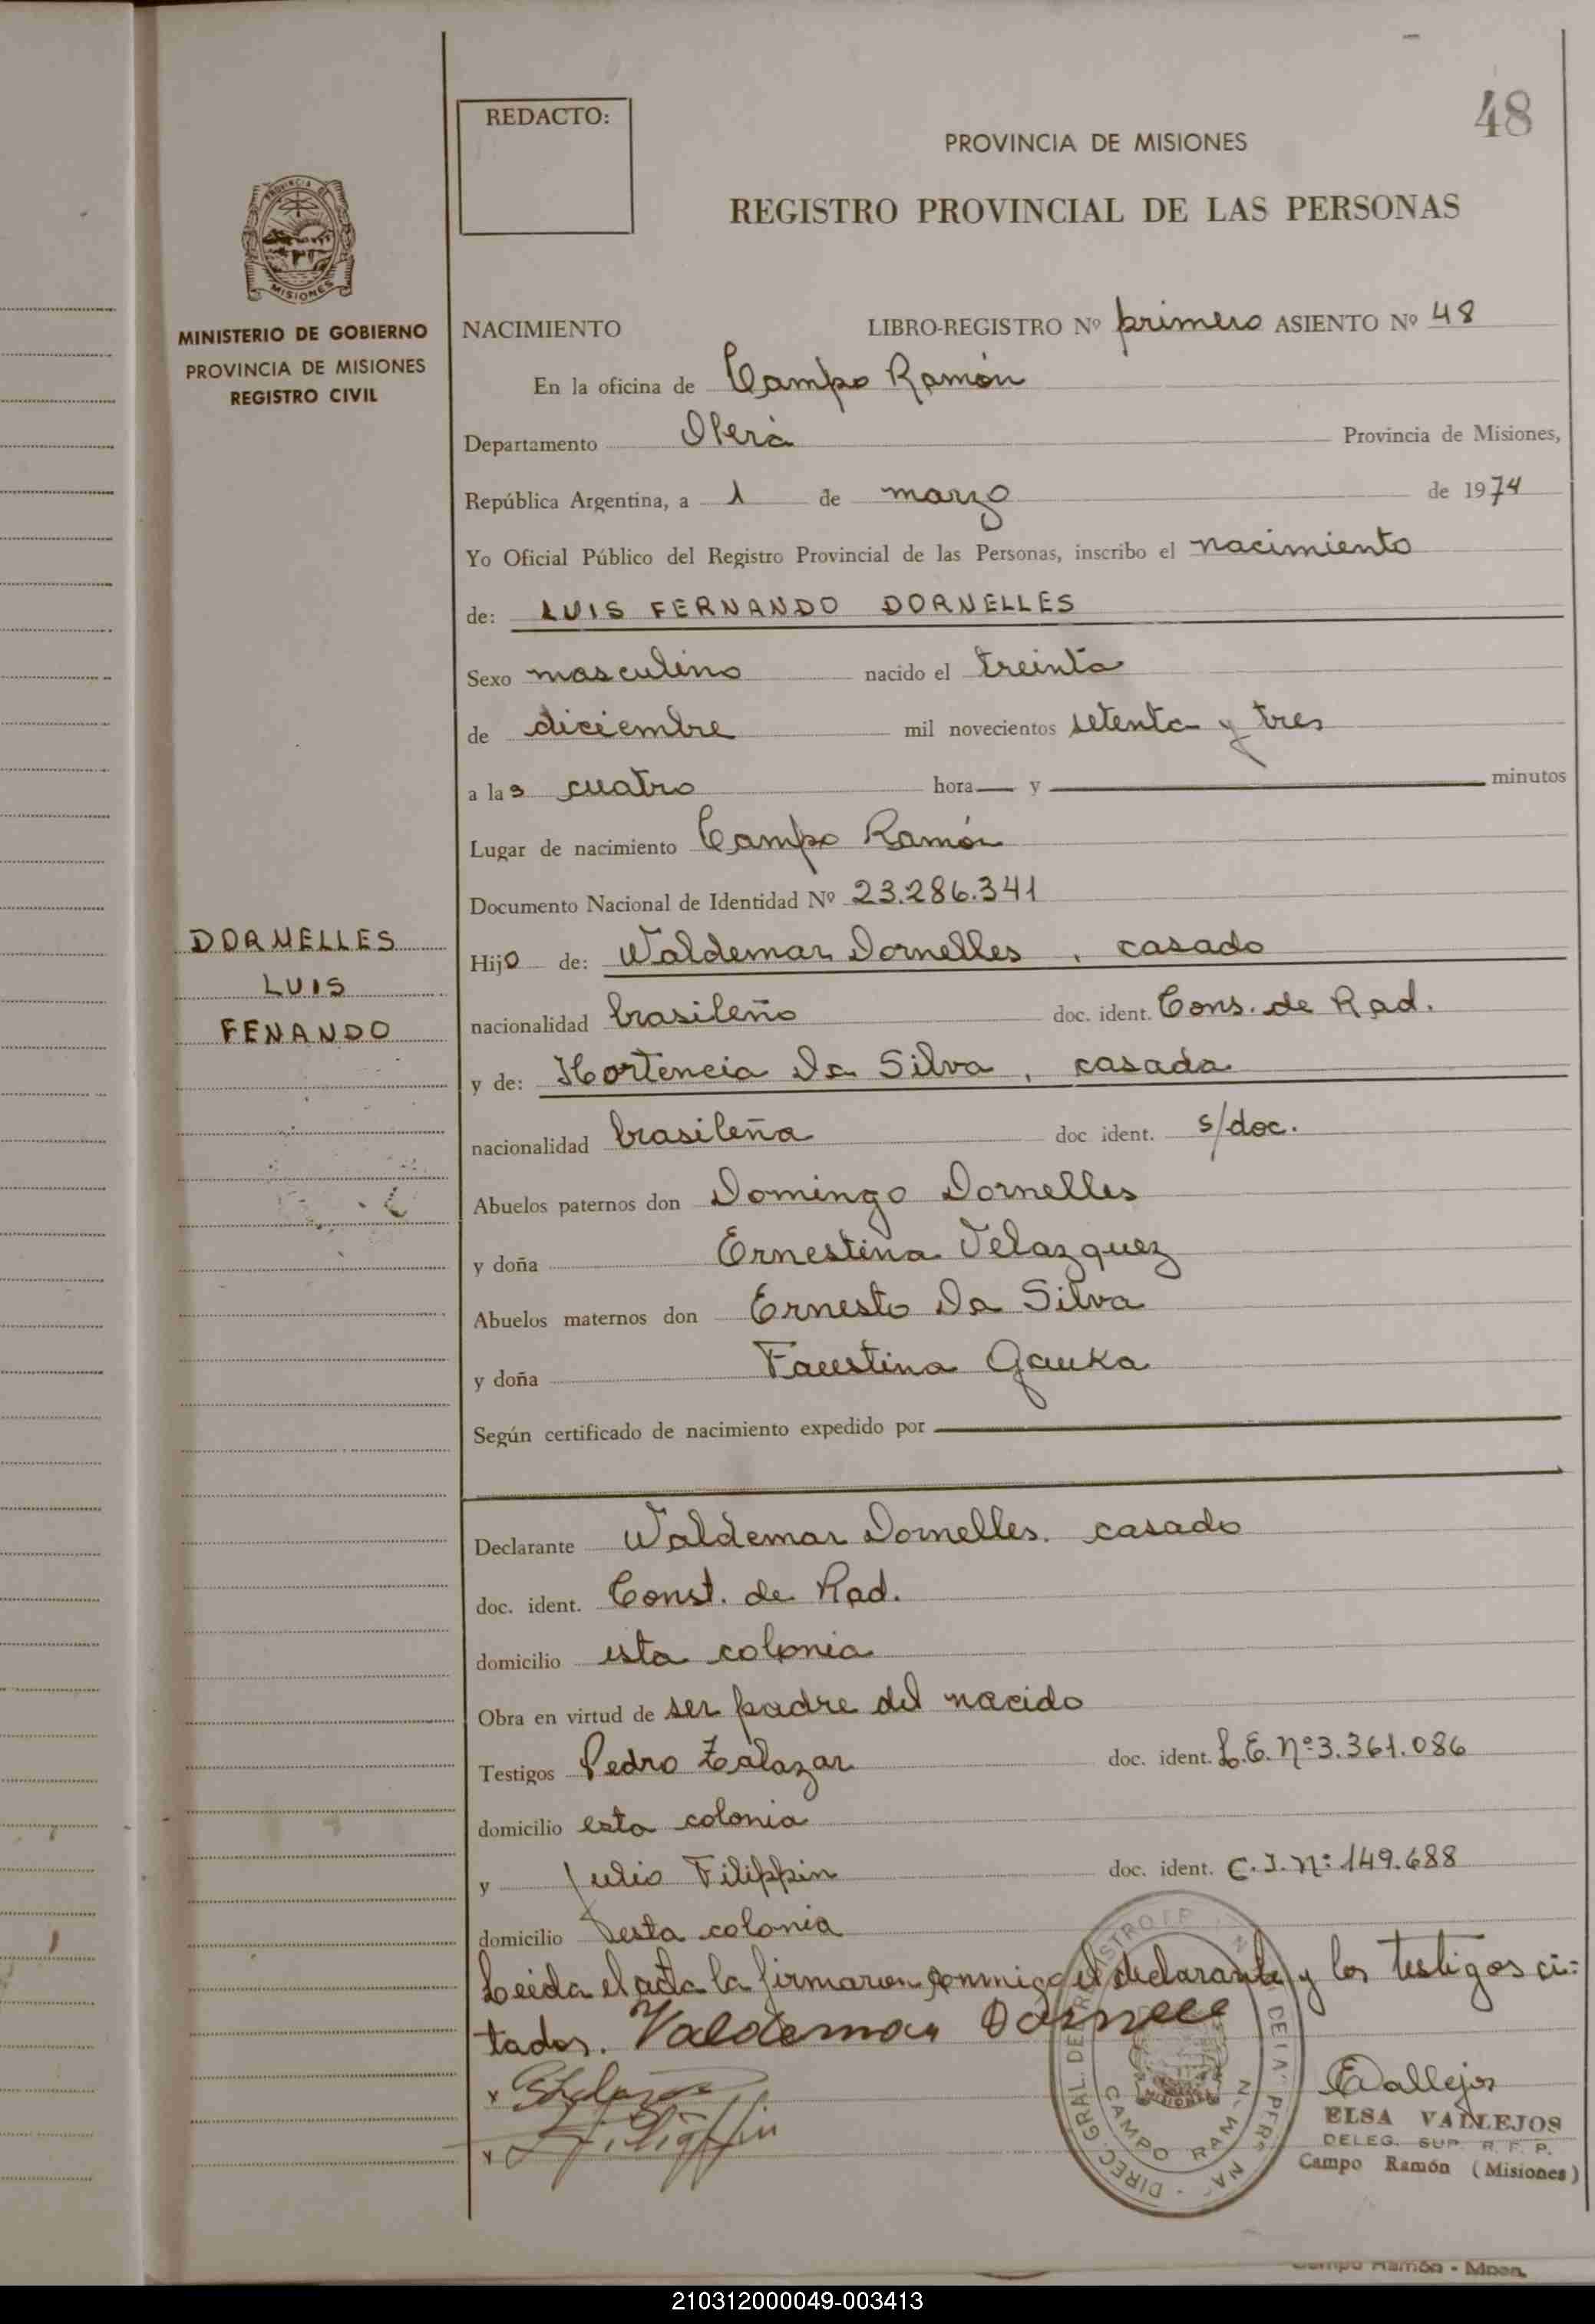 REDACTO:
48
PROVINCIA DE MISIONES
REGISTRO PROVINCIAL DE LAS PERSONAS
PROVINCIA DE
MISIONES
MINISTERIO DE GOBIERNO
PROVINCIA DE MISIONES
REGISTRO CIVIL
NACIMIENTO LIBRO-REGISTRO Nº primero ASIENTO Nº 48
En la oficina de Campo Ramón
Departamento Oberá Provincia de Misiones,
República Argentina, a 1 de marzo de 1974
Yo Oficial Público del Registro Provincial de las Personas, inscribo el nacimiento
de: LUIS FERNANDO DORNELLES
Sexo masculino nacido el treinta
de diciembre mil novecientos setenta y tres
a las cuatro hora y minutos
Lugar de nacimiento Campo Ramón
Documento Nacional de Identidad Nº 23.286.341
DORNELLES
LUIS
FENANDO
Hijo de: Waldemar Dornelles, casado
nacionalidad brasileño doc. ident. Cons. de Rad.
y de: Hortencia Da Silva, casada
nacionalidad brasileña doc ident. s/doc.
Abuelos paternos don Domingo Dornelles
y doña Ernestina Velazquez
Abuelos maternos don Ernesto Da Silva
y doña Faustina Gauka
Según certificado de nacimiento expedido por
Declarante Waldemar Dornelles. casado
doc. ident. Const. de Rad.
domicilio esta colonia
Obra en virtud de ser padre del nacido
Testigos Pedro Zalazar doc. ident. L.E. Nº 3.361.086
domicilio esta colonia
y Julio Filippin doc. ident. C.I. Nº: 149.688
domicilio esta colonia
Leida el acta la firmaron conmigo el declarante y los testigos ci-
tados. Valdemar Dornell
Filippin
CAMPO RAMÓN
MISIONES
EVallejos
ELSA VALLEJOS
DELEG. SUP. R. P. P.
Campo Ramón (Misiones)
Campo Ramón - Mnes.
210312000049-003413